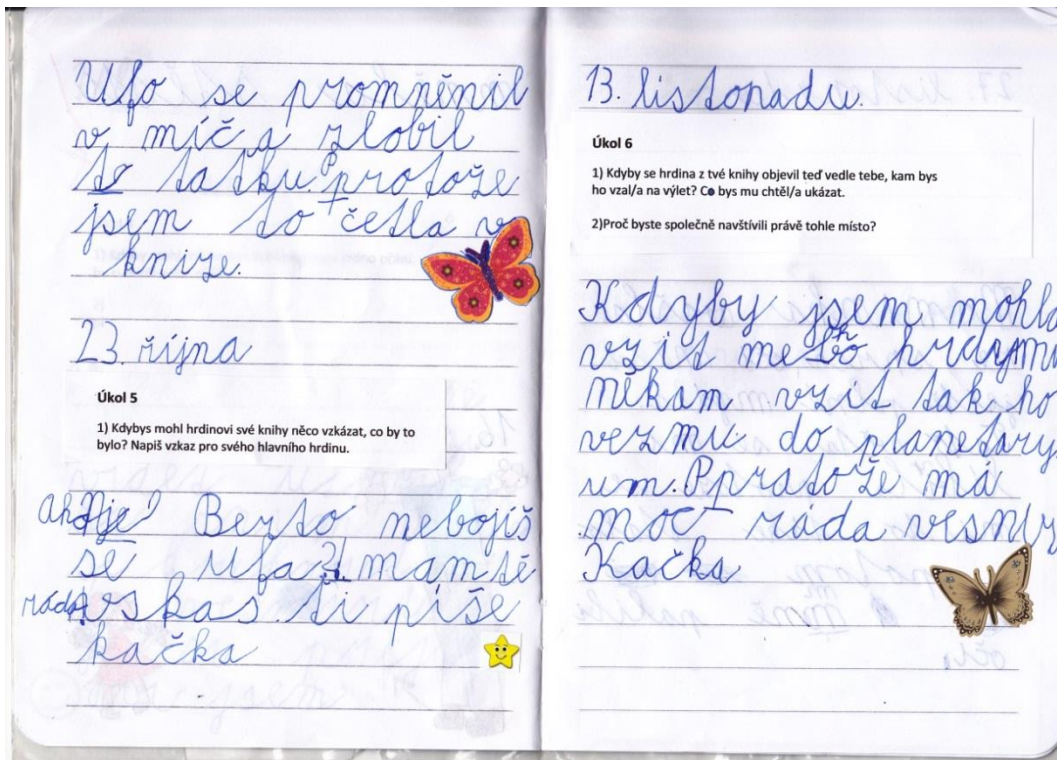 Ufo se proměnil
v míč a zlobil
taťku. Protože
jsem to četla v
knize.
23. října
Úkol 5
1) Kdybys mohl hrdinovi své knihy něco vzkázat, co by to
bylo? Napiš vzkaz pro svého hlavního hrdinu.
ahoj! Berto nebojíš
se Ufa? mam tě
ráda vskas ti píše
kačka
13. listopadu.
Úkol 6
1) Kdyby se hrdina z tvé knihy objevil teď vedle tebe, kam bys
ho vzal/a na výlet? Co bys mu chtěl/a ukázat.
2)Proč byste společně navštívili právě tohle místo?
Kdyby jsem mohla
vzit
někam vzit tak ho
vezmu do planetary
um. Pprotože má
moc ráda vesmír
Kačka